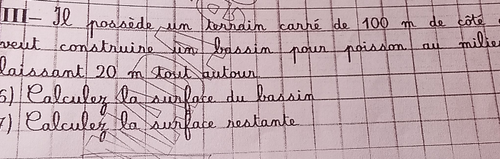 III- Il possède un terrain carré de 100 m de côté
veut construire un bassin pour poisson au milie
laissant 20 m tout autour
6) Calculez la surface du bassin
7) Calculez la surface restante